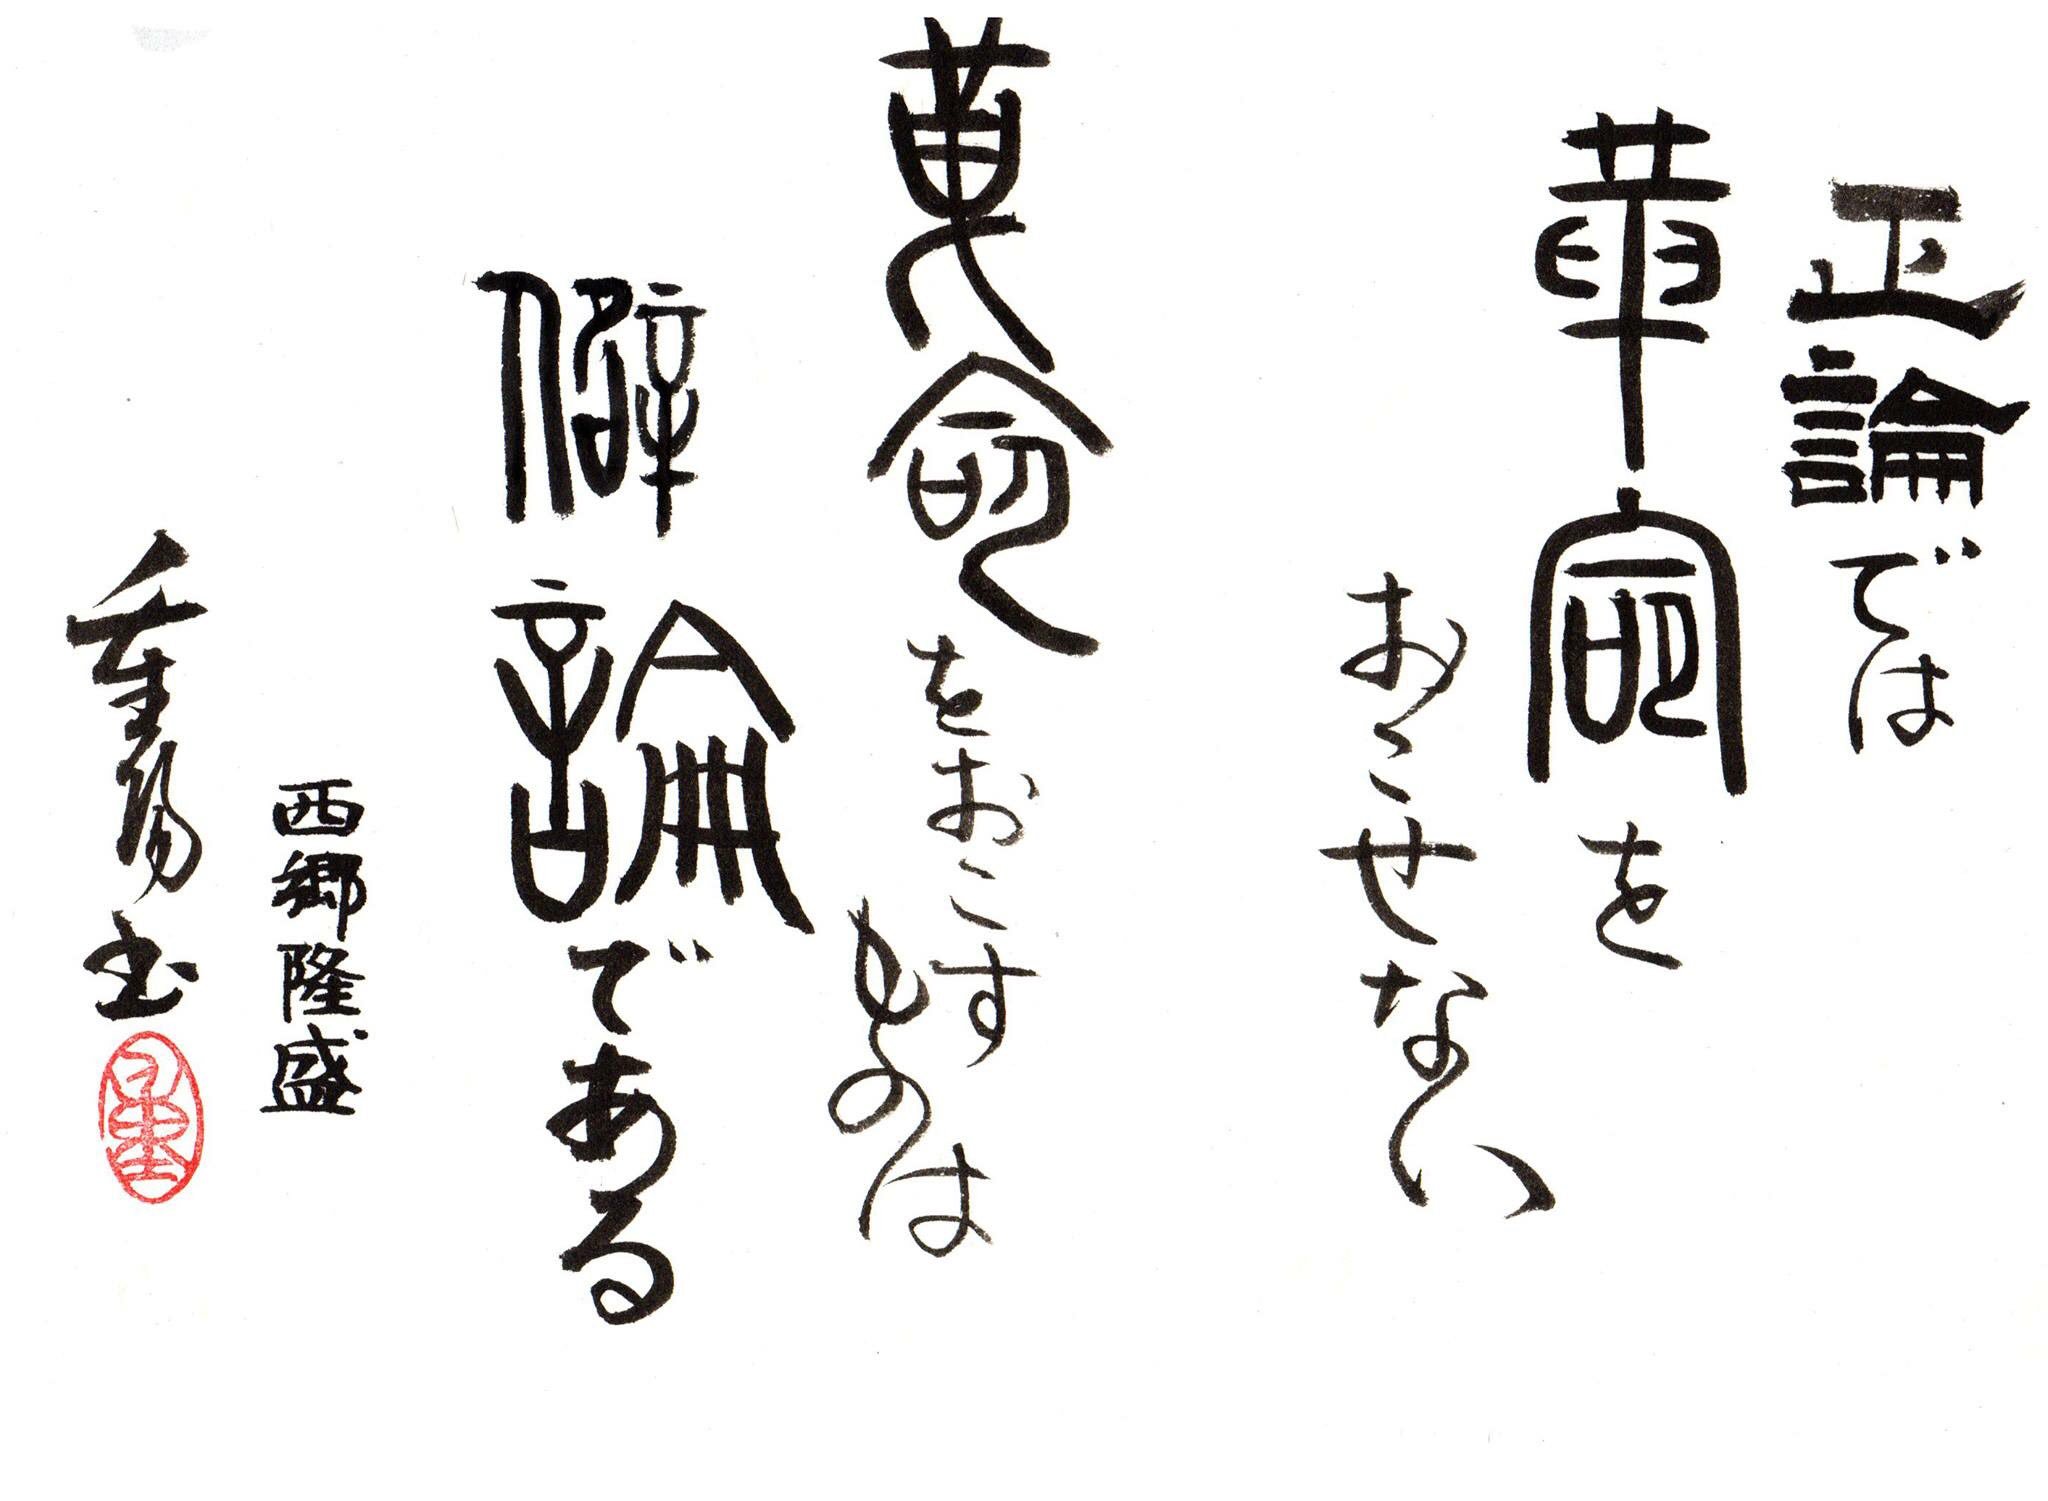 正論では
革命を
おこせない
革命
をおこす
ものは
僻論
である
西郷隆盛
重陽書